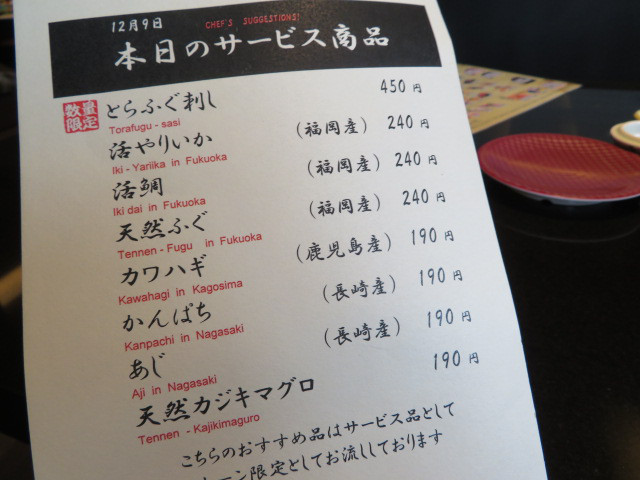 12月9日 CHEF'S SUGGESTIONS!
本日のサービス商品
数量限定 とらふぐ刺し 450円
Torafugu - sasi
活やりいか (福岡産) 240円
Iki - Yariika in Fukuoka
活鯛 (福岡産) 240円
Iki dai in Fukuoka
天然ふぐ (福岡産) 240円
Tennen - Fugu in Fukuoka
カワハギ (鹿児島産) 190円
Kawahagi in Kagosima
かんぱち (長崎産) 190円
Kanpachi in Nagasaki
あじ (長崎産) 190円
Aji in Nagasaki
天然カジキマグロ 190円
Tennen - Kajikimaguro
こちらのおすすめ品はサービス品として
ーン限定としてお流ししております